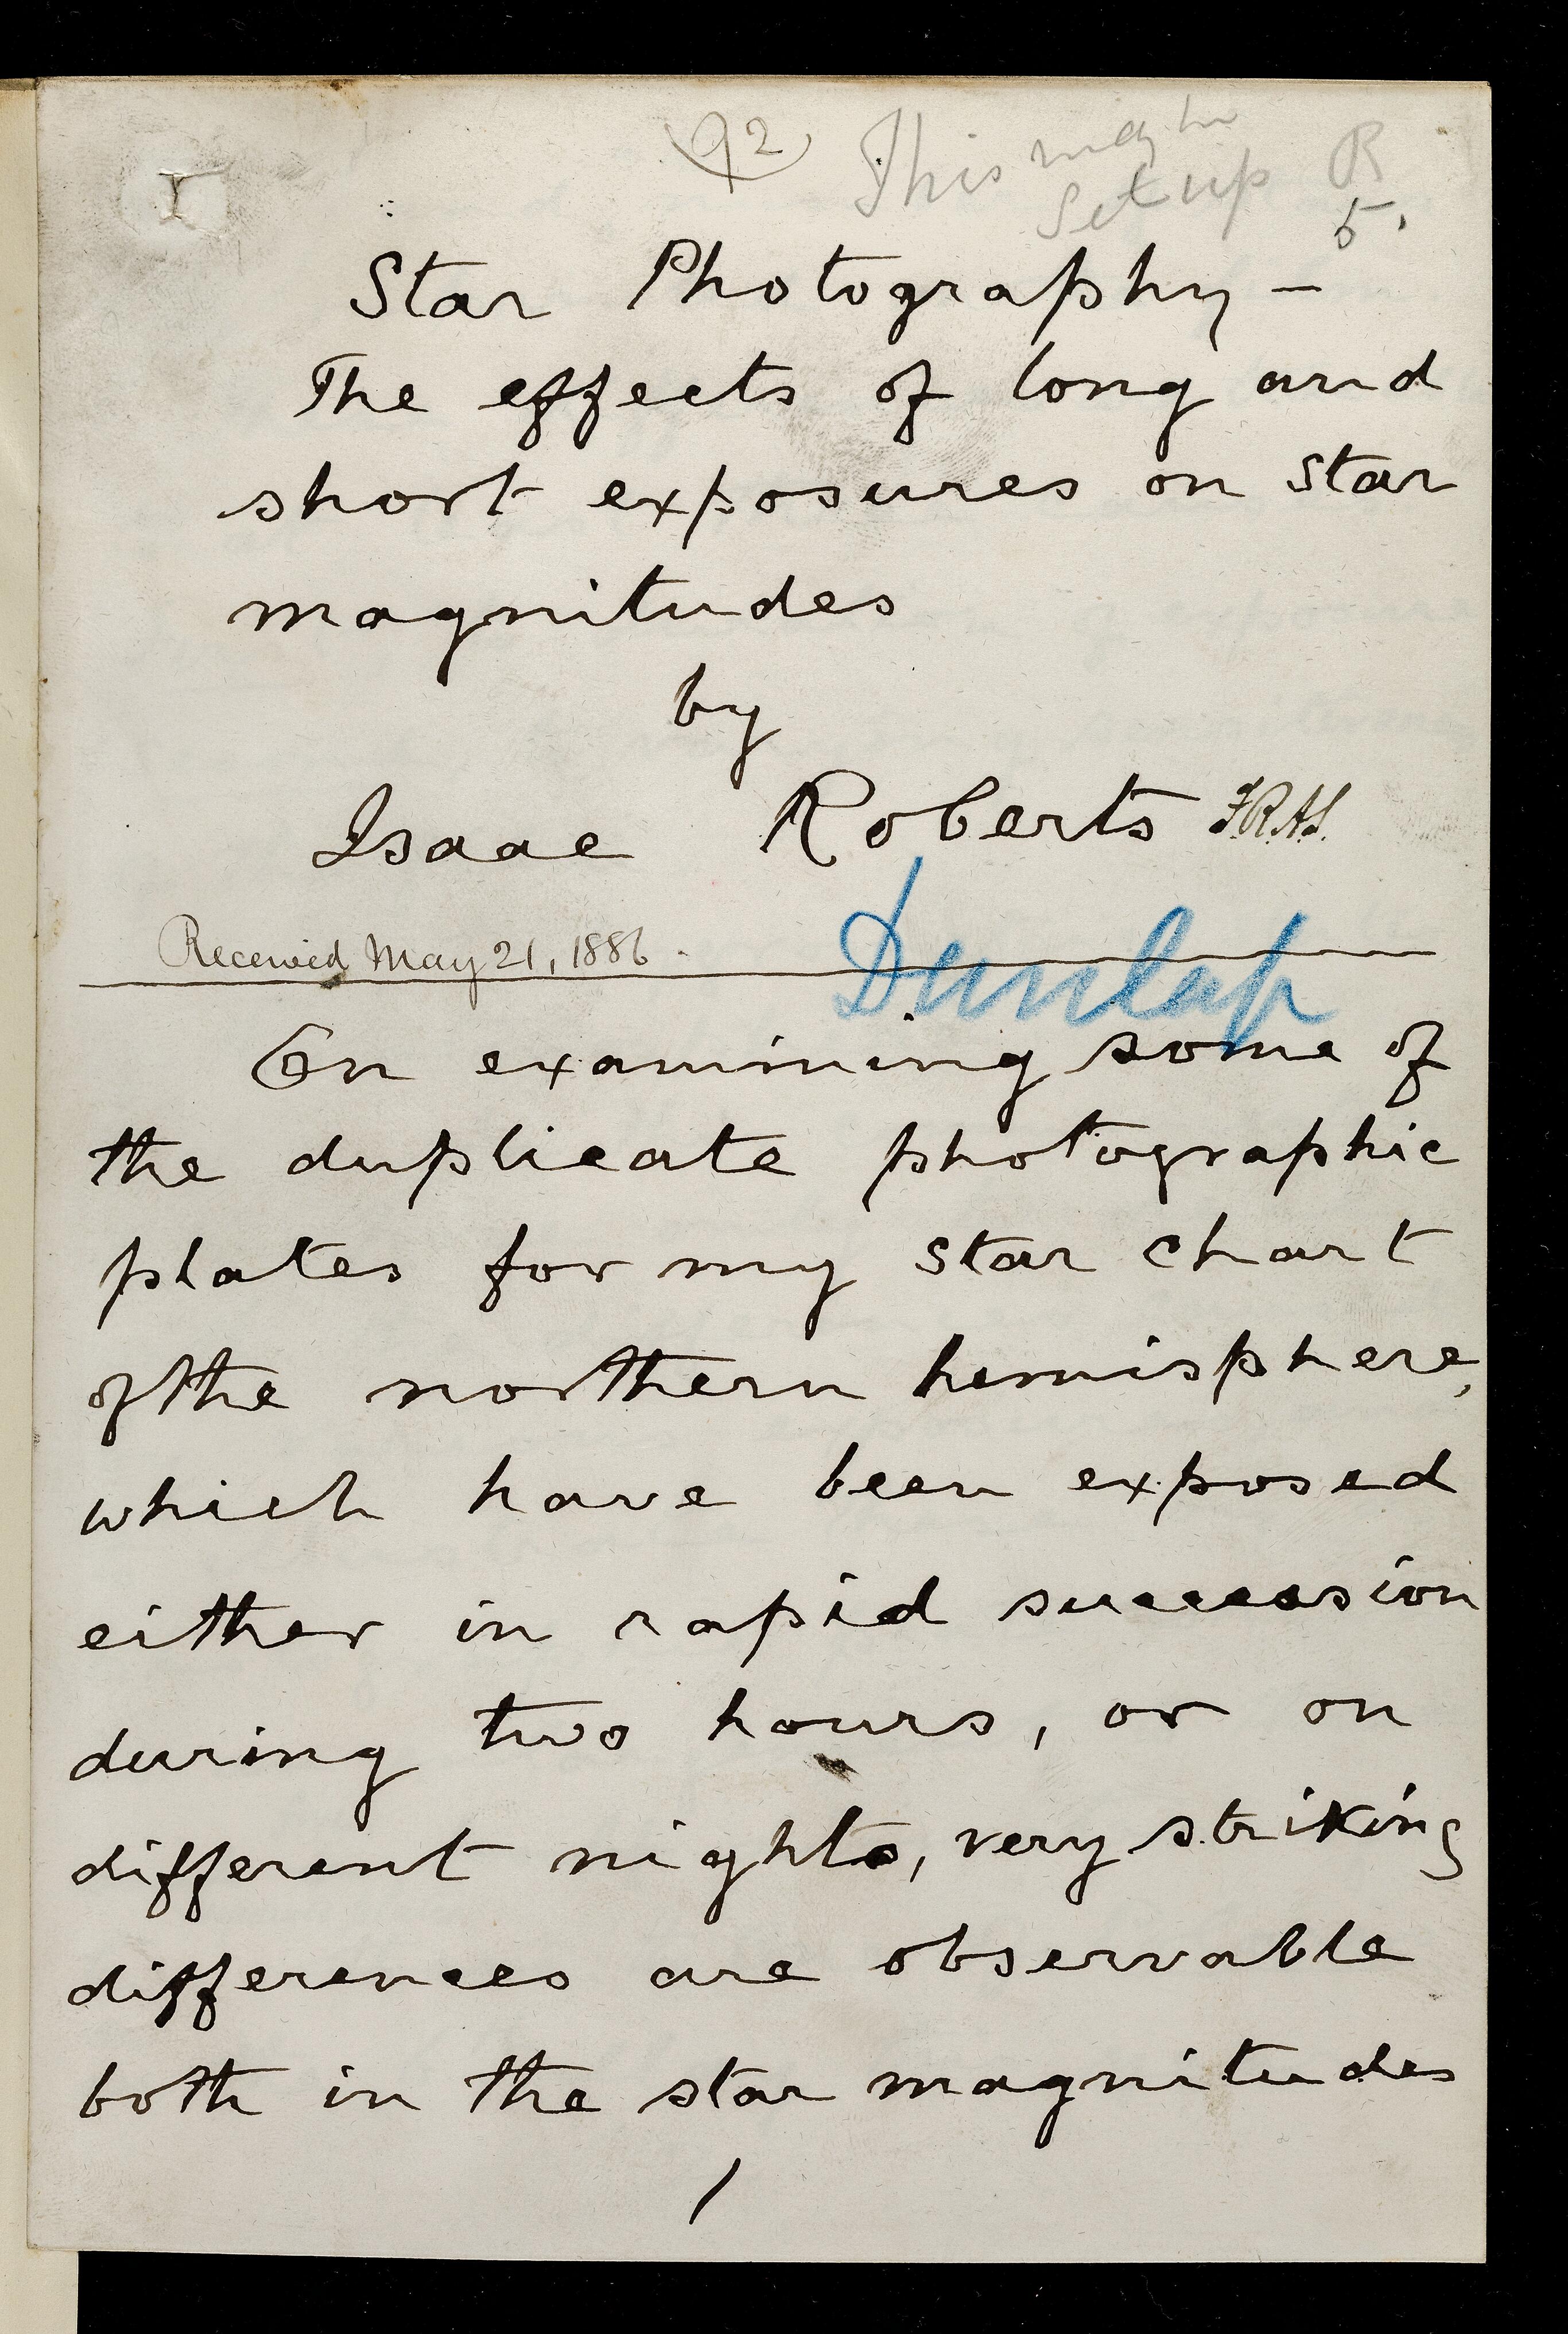 92
This may be
set up R
5.
Star Photography —
The effects of long and
short exposures on star
magnitudes
by
Isaac Roberts F.R.A.S.
Received May 21, 1886.
Dunlap
On examining some of
the duplicate photographic
plates for my star chart
of the northern hemisphere,
which have been exposed
either in rapid succession
during two hours, or on
different nights, very striking
differences are observable
both in the star magnitudes
1